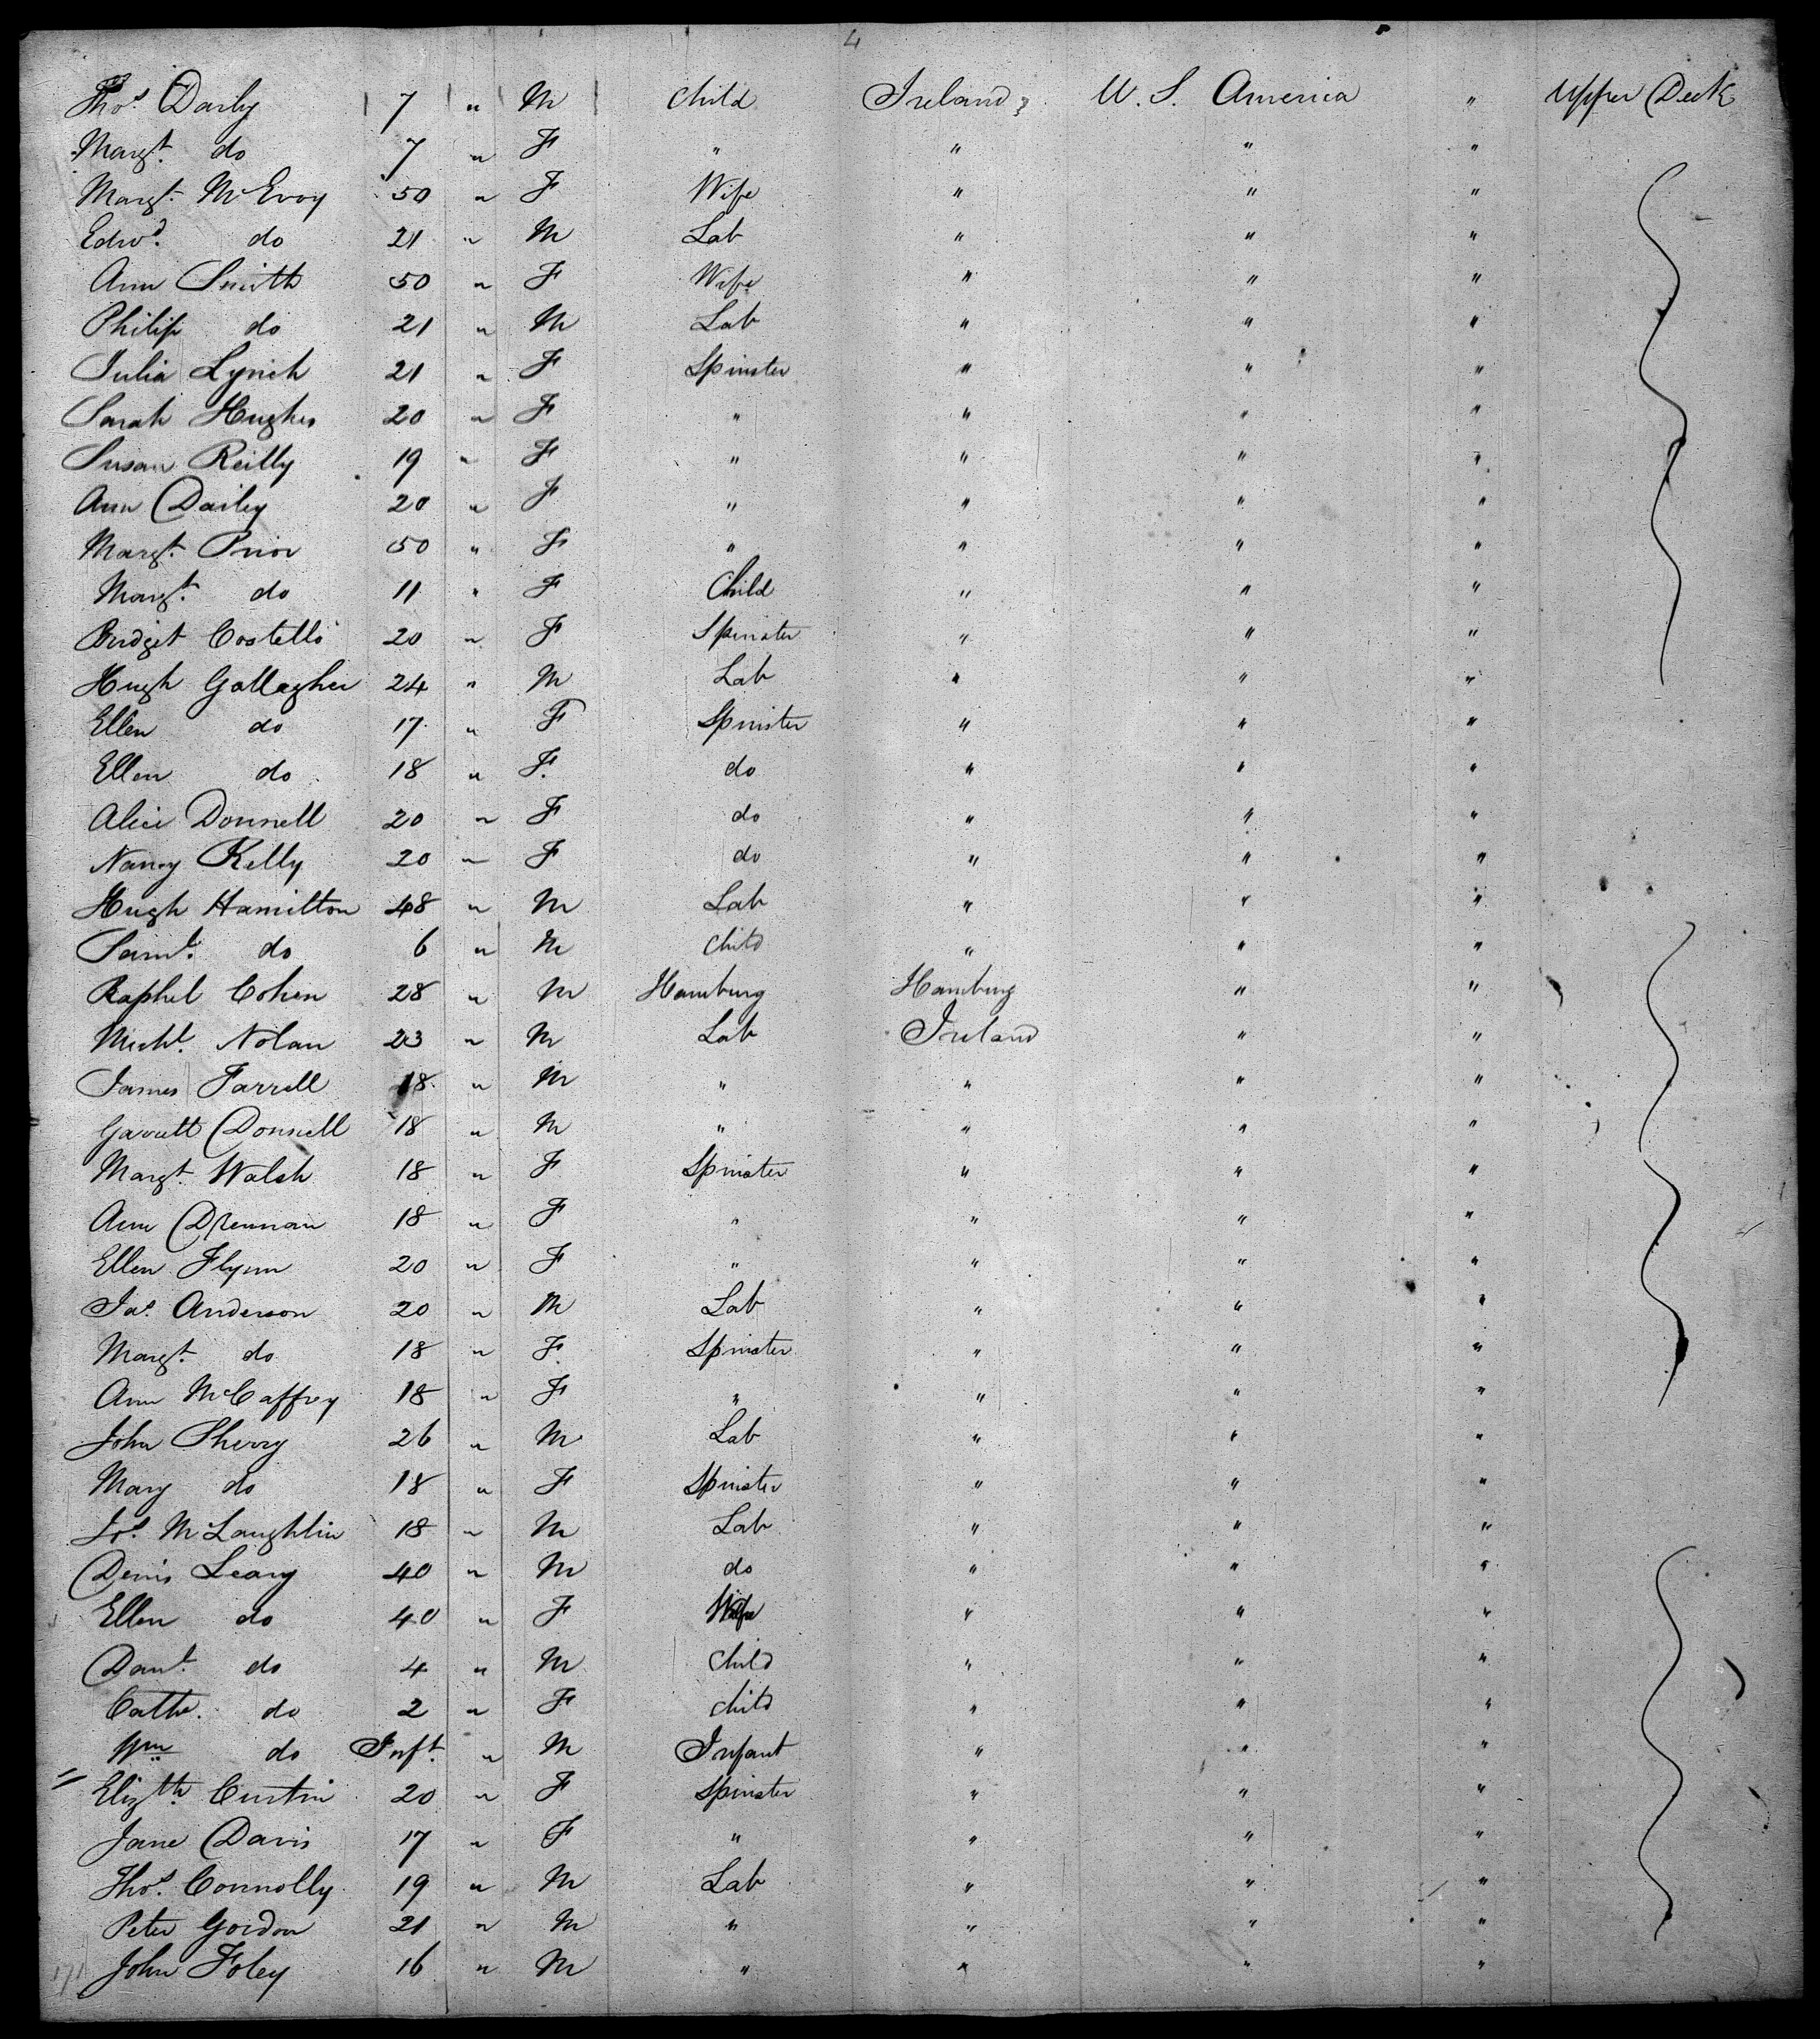 4
Thos. Daily 7 " M Child Ireland U. S. America " Upper Deck
Margt. do 7 " F " " " "
Margt. McEvoy 50 " F Wife " " "
Edwd. do 21 " M Lab " " "
Ann Smith 50 " F Wife " " "
Philip do 21 " M Lab " " "
Julia Lynch 21 " F Spinster " " "
Sarah Hughes 20 " F " " " "
Susan Reilly 19 " F " " " "
Ann Dailey 20 " F " " " "
Margt. Prior 50 " F " " " "
Margt. do 11 " F Child " " "
Bridget Costello 20 " F Spinster " " "
Hugh Gallagher 24 " M Lab " " "
Ellen do 17 " F Spinster " " "
Ellen do 18 " F. do " " "
Alice Donnell 20 " F do " " "
Nancy Kelly 20 " F do " " "
Hugh Hamilton 48 " M Lab " " "
Saml. do 6 " M Child " " "
Raphel Cohen 28 " M Hamburg Hamburg " "
Michl. Nolan 23 " M Lab Ireland " "
James Farrell 18 " M " " " "
Garrett Donnell 18 " M " " " "
Margt. Walsh 18 " F Spinster " " "
Ann Drennan 18 " F " " " "
Ellen Flynn 20 " F " " " "
Jas. Anderson 20 " M Lab " " "
Margt. do 18 " F. Spinster " " "
Ann McCaffrey 18 " F " " " "
John Sherry 26 " M Lab " " "
Mary do 18 " F Spinster " " "
Jos. McLaughlin 18 " M Lab " " "
Denis Leary 40 " M do " " "
Ellen do 40 " F Wife " " "
Danl. do 4 " M Child " " "
Cathe. do 2 " F Child " " "
Wm do Inft. " M Infant " " "
Elizth. Curtin 20 " F Spinster " " "
Jane Davis 17 " F " " " "
Thos. Connolly 19 " M Lab " " "
Peter Gordon 21 " M " " " "
John Foley 16 " M " " " "